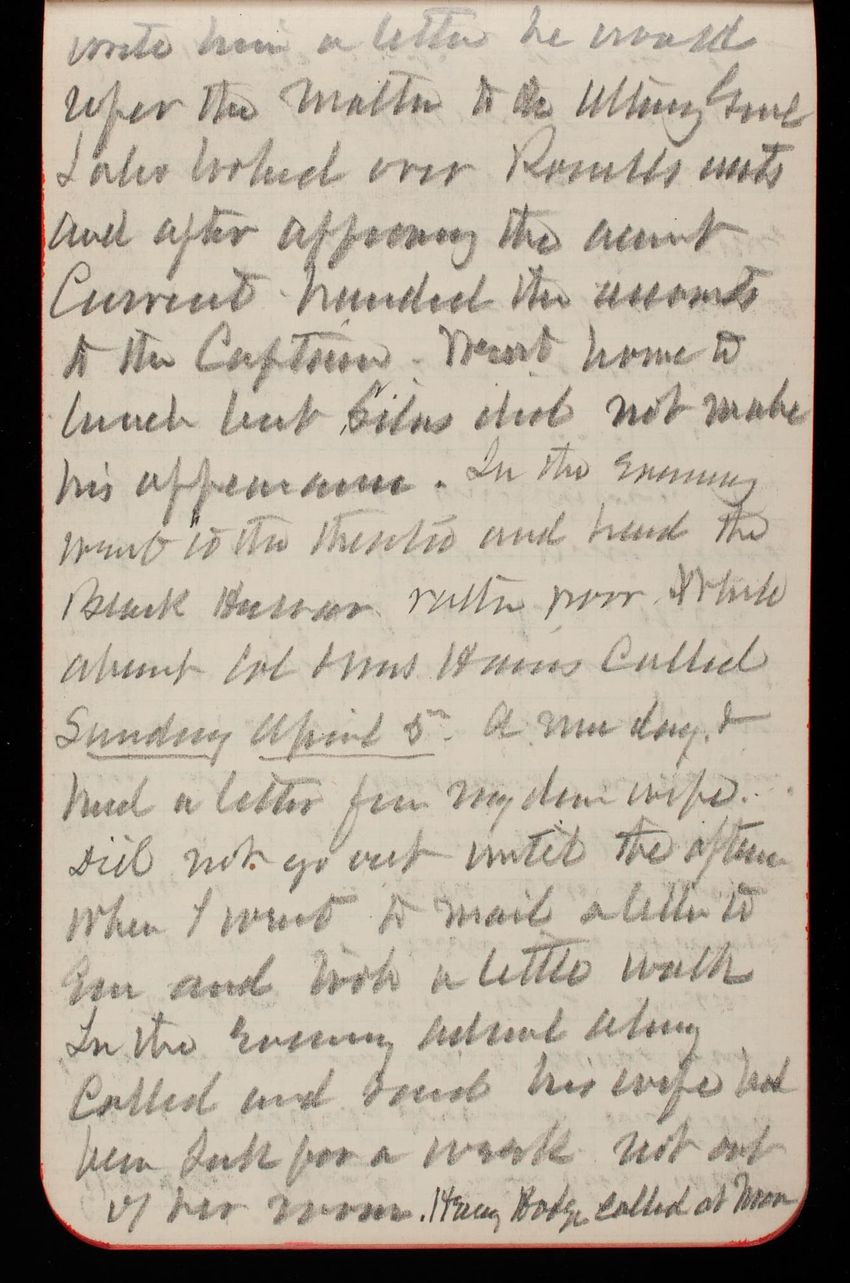 write him a letter he would
refer the matter to the Atty Genl
Later looked over Rosells accts
and after approving the accnt
Current handed the accounts
to the Captain. Went home to
lunch but Silas did not make
his appearance. In the Evening
went to the theatre and heard the
Black Hussar rather poor. While
absent Col & Mrs Hains Called
Sunday April 5th. A nice day. &
had a letter from my dear wife.
Did not go out until the aftern
when I went to mail a letter to
Em and took a little walk
In the Evening Admiral
Called and said his wife had
been sick for a week not out
of her room. Henry Hodge called at Noon